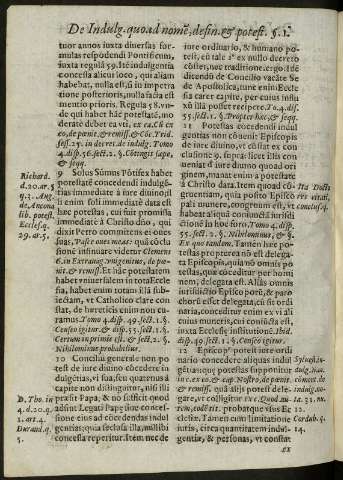 De Indulg. quo.ad nomē, defin. & potest. §.1.
tuor annos iuxta diuersas for-
mulas respodendi Pontificum,
iuxta regulā 59. Itē indulgentia
concessa alicui loco, qui aliam
habebat, nulla est, si in impetra
tione posterioris, nulla facta est
mentio prioris. Regula 58. vn-
de qui habet hāc potestatē, mo
deratè debet ea vti, ex ca. Cū ex
eo, de pœnit. & remiss. & Cōc. Trid.
sess. 25. in decret. de indulg. Tomo
4. disp. 56. sect. 2. §. Obtingit sæpe,
& seqq.
9 Solus Sūmus Pōtifex habet
potestatē concedendi indulgē-
tias immediatè à iure diuino; si
li enim soli immediatè data est
hæc potestas, cui fuit promissa
immediatè à Christo dño, qui
dixit Petro committens ei oues
suas, Pasce oues meas: quā cōclu
sionē insinuare videtur Clemens
6. in Extrauag. vnigenitus, de pœ-
nit. & remiss. Et hāc potestatem
habet vniuersalem in tota Eccle
sia, habet enim totam Illā subie-
ctam, vt Catholico clarè con-
stat, de hæreticis enim non cu-
ramus. Tomo 4. disp. 49. sect. 1. §.
Censeo igitur. & disp. 55. sect. 1. §.
Certum in primis est. & disp. 52. §.
Nihilominus probabilius.
10 Conciliū generale non po
test de iure diuino cōcedere in
dulgētias, vi sua, seu quatenus à
capite non distinguitur, nisi illi
præsit Papa; & no sufficit quod
adsint Legati Papæ sine conces-
sione eius ad cōcedendas indul
gentias; quia seclusa illa, militi
concessa reperitur. Item nec de
iure ordinario, & humano po-
test, cū tale ius ex nullo decreto
cōstet, nec traditione. ergo. Idē
dicendū de Concilio vacāte Se
de Apostolica, tunc enim Eccle
sia caret capite, per cuius influ
xū illa potest recipere. To. 4. disp.
55. sect. 1. §. Propter hæc, & seqq.
11 Potestas cōcedendi indul
gentias non cōuenit Episcopis
de iure diuino, vt cōstat ex con
clusione 9. supra: licet illis con
ueniat de iure diuino quoad ori
ginem, manat enim a potestate
à Christo data. Item quoad cō-
gruitatem, quia posito Episco
pali munere, cōgruens est, vt
habeat aliquā coniunctā iurisdi
ctionē in hoc foro. Tomo 4. disp.
55. sect. 2. §. Nihilominus, & §.
Ex quo tandem. Tamen hæc po
testas propterea nō est delega-
ta Episcopis, quia omnis po
testas, quæ cōceditur per homi
nem, delegata est. Aliàs omnis
iurisdictio Episcoporū, & paro
chorū esset delegata, cū sit ordi
naria, conceditur enim ex vi ali
cuius muneris, cui coniuncta est,
iuxta Ecclesiæ institutionē. Ibid.
disp. 49. sect. 1. §. Censeo igitur.
12 Episcopi potest iure ordi
nario concedere aliquas indul
gentias; quæ potestas supponitur
in c. ex eo. & cap. Nostro, de pœnit.
& remiss. quā aliis potest dele-
gare, vt colligitur ex c. Quod au-
tem, eod. tit. probatque vsus Ec
clesiæ. Tamen cum limitatione
iuris, circa quantitatem indul-
gentiæ, & personas, vt constat
ex
Richard.
d. 20. ar. 5
q. 3. Aug.
de Ancona
lib. potest.
Eccles. q.
29. ar. 5.
D. Tho. in
4. d. 20. q.
1. art. 4.
Durand. q.
5.